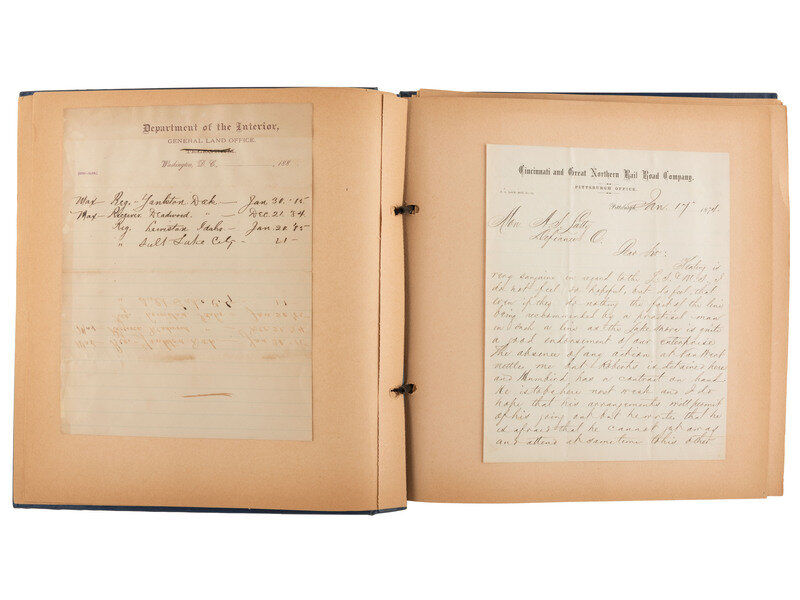 Department of the Interior,
GENERAL LAND OFFICE.
Washington, D. C., 188
Max Reg. - Yankton Dak - Jan 30 - 85
Max Receiver Deadwood " - Dec. 21. 84
Reg. Lewiston Idaho - Jan. 20. 85
" Salt Lake City - 21 -
Cincinnati and Great Northern Rail Road Company.
PITTSBURGH OFFICE.
Pittsburgh, Jan. 17 1874.
Hon A. S. Latty
Defiance O.
Dear Sir:
is
very sanguine in regard to the L. S. & M. S. I
do not feel so hopeful, but I feel that
even if they do nothing the fact of the line
being recommended by a practical man
in such a line as the Lake Shore is quite
a good endorsement of our enterprise
The absence of any action at Van Wert
nettles me but Roberts is detained here
and has a contract on hand
He is to be here next week and I do
hope that his arrangements will permit
of his going out but he writes that he
is afraid that he cannot get away
and attend at same time to his other